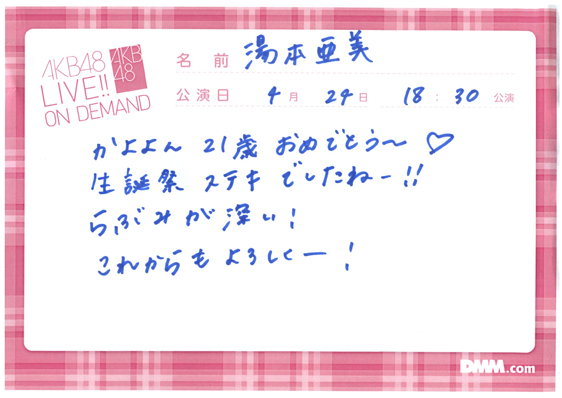 AKB48
LIVE!!
ON DEMAND
AKB
48
名前 湯本亜美
公演日 4月 24日 18:30 公演
かよよん 21歳 おめでとう〜♡
生誕祭 ステキ でしたねー!!
らぶみが深い!
これからも よろしくー!
DMM.com